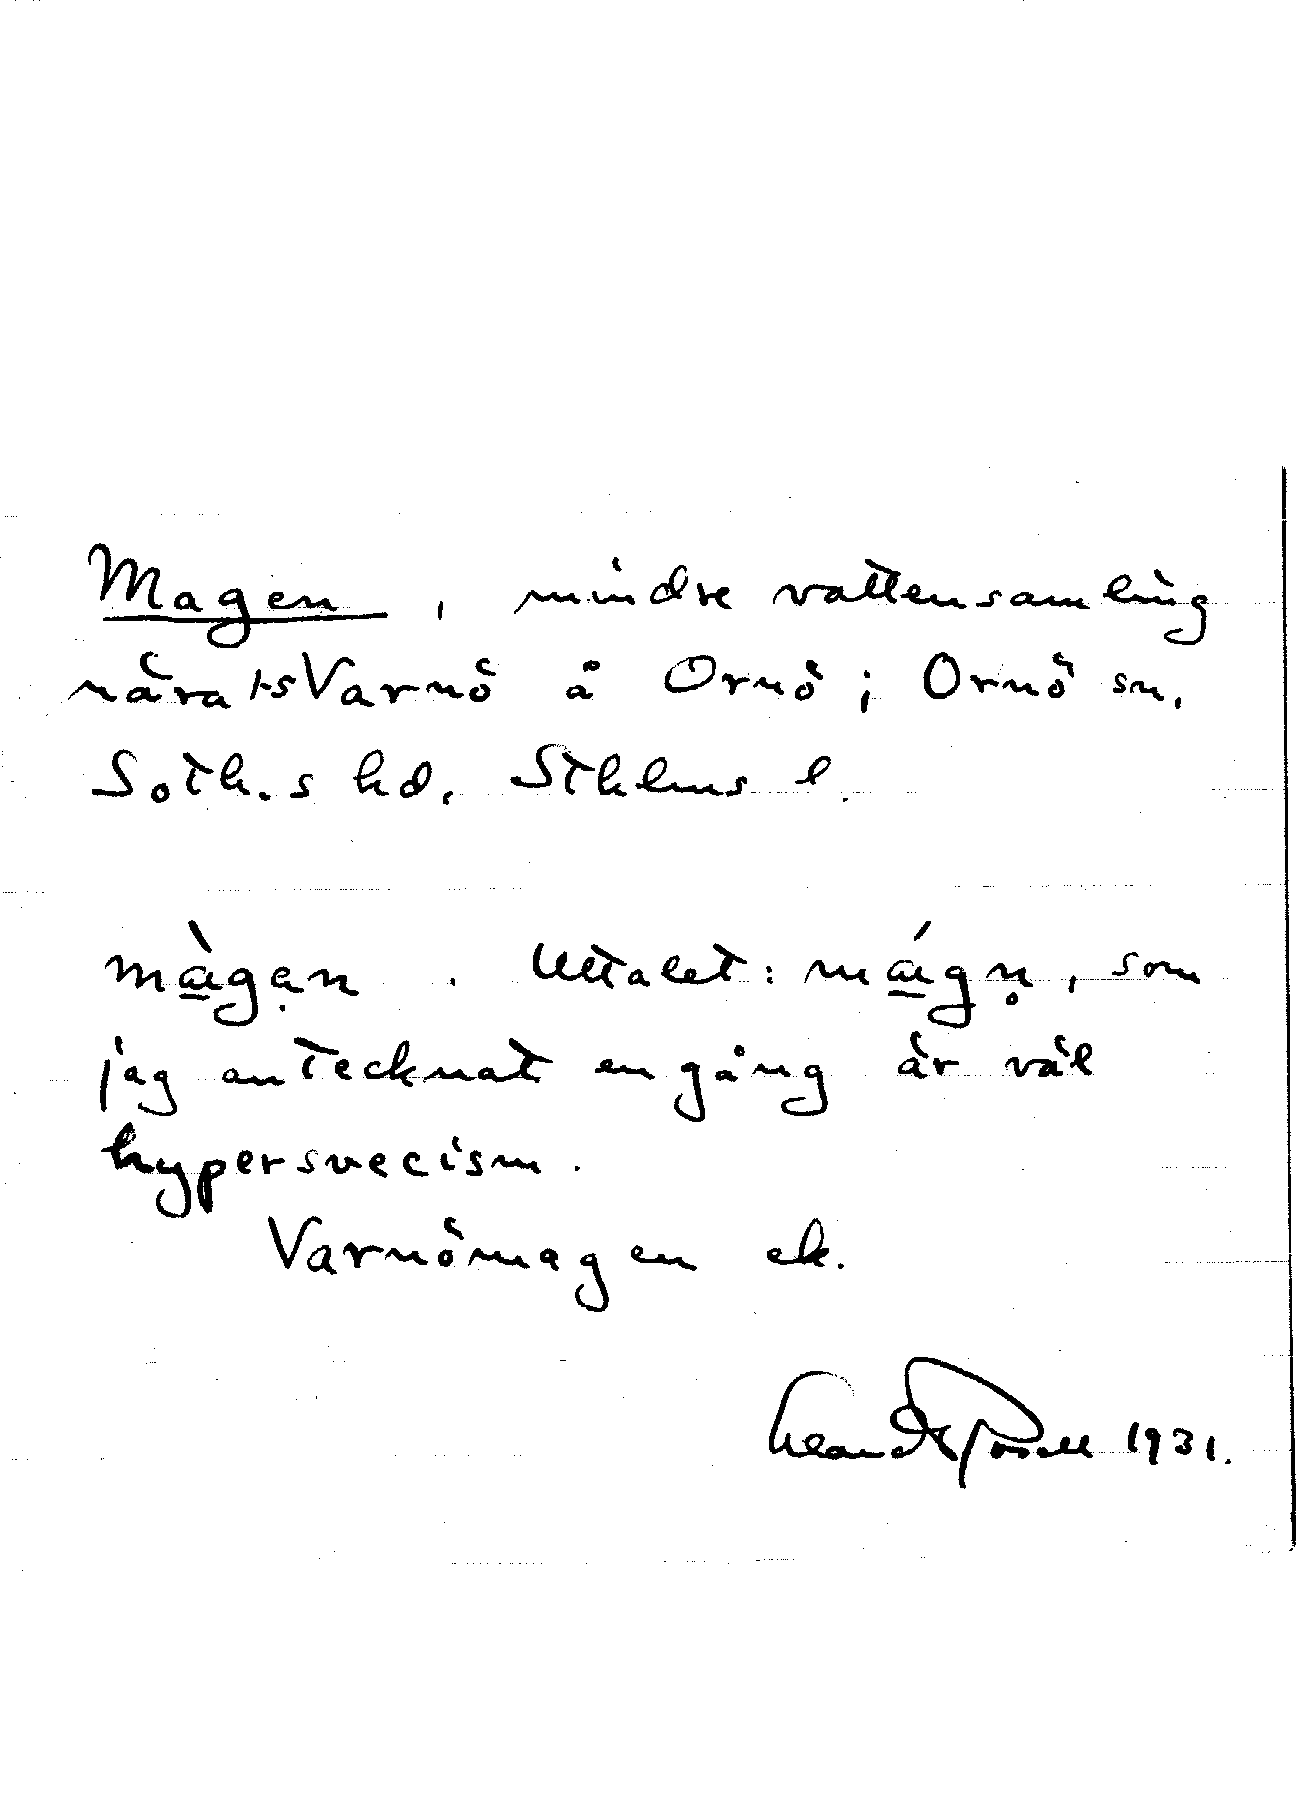 Magen, mindre vattensamling
nära t-s Varnö å Ornö; Ornö sn,
Soth.s hd, Sthlms l.
màgạn. Uttalet: mágn̥, som
jag antecknat en gång är väl
hypersvecism.
Varnömagen ek.
1931.